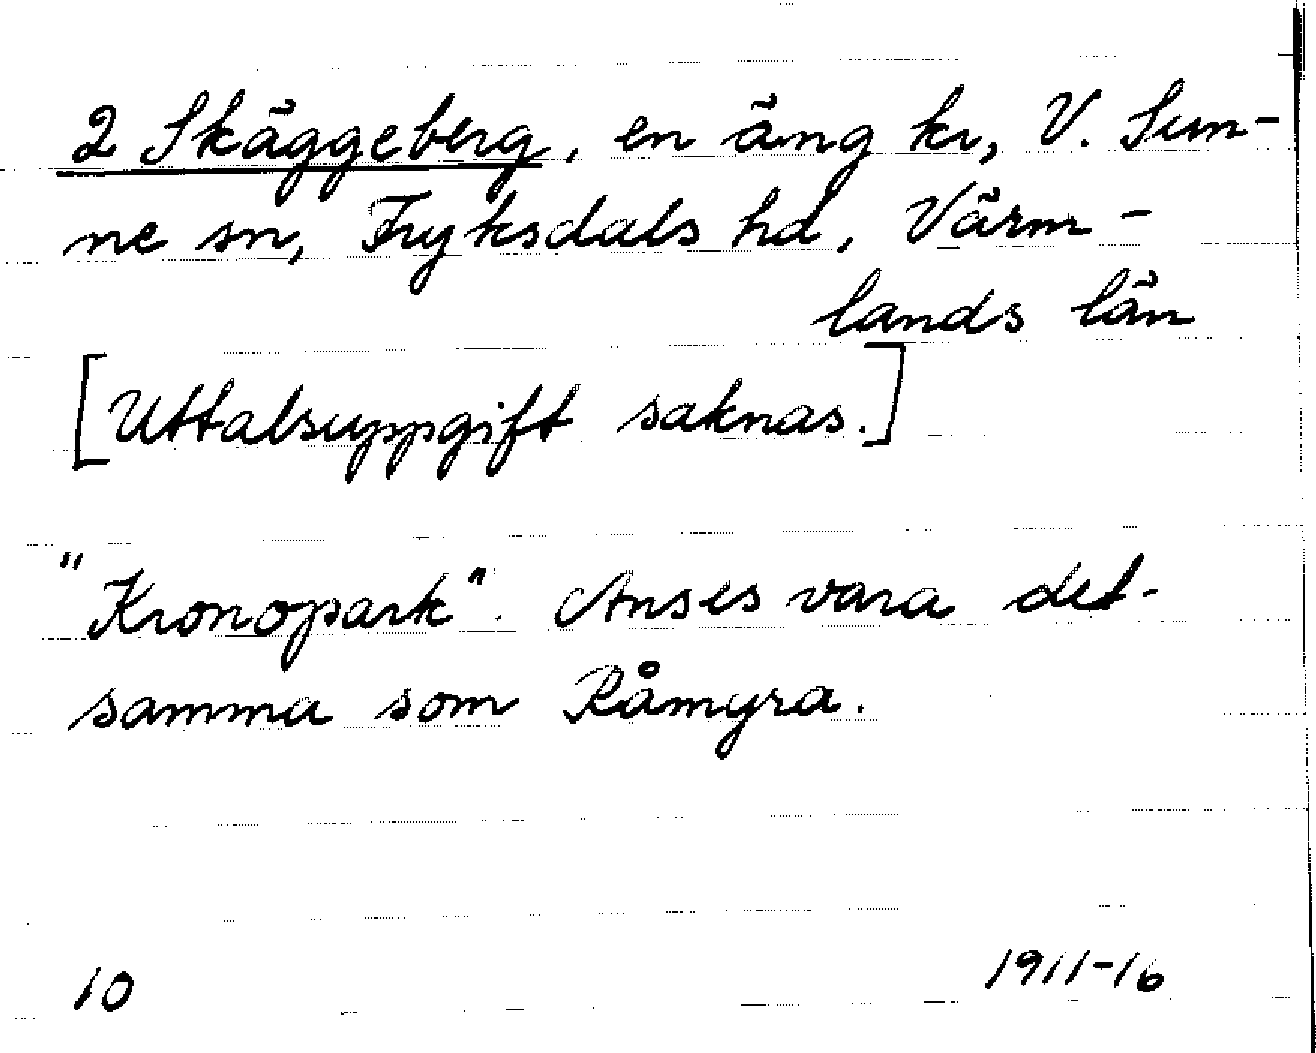 2 Skäggeberg, en äng kr, V. Sun-
ne sn, Fryksdals hd, Värm-
lands län
[Uttalsuppgift saknas.]
"Kronopark". Anses vara det-
samma som Råmyra.
10
1911-16